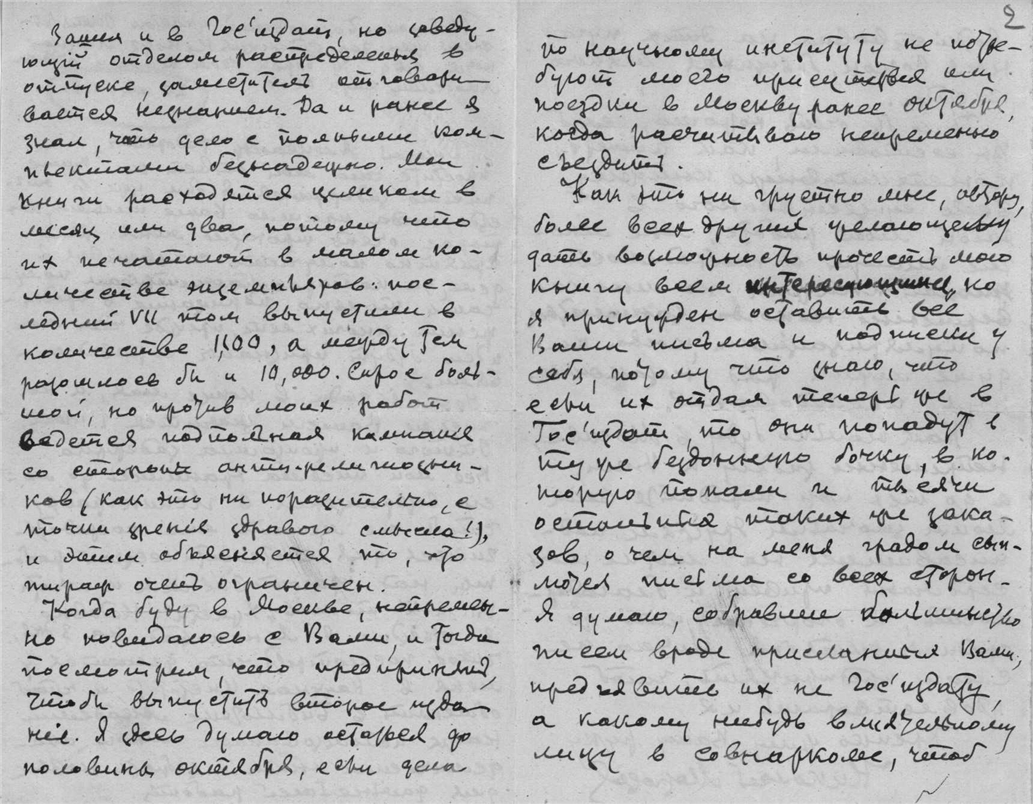 Зашел и в Гос'издат, но заведу-
ющiй отделом распределенья в
отпуске, заместитель отговари
вается незнанием. Да и ранее я
знал, что дело с полными ком-
плектами безнадежно. Мои
книги расходятся целиком в
месяц или два, потому что
их печатают в малом ко-
личестве экземпляров: пос-
ледний VII том выпустили в
количестве 1,100, а между тем
разошлось бы и 10,000. Спрос боль-
шой, но против моих работ
ведется подпольная кампания
со стороны анти-религиозни-
ков (как это ни поразительно, с
точки зренiя здравого смысла!),
и этим объясняется то, что
тираж очень ограничен.
Когда буду в Москве, непремен-
но повидаюсь с Вами, и тогда
посмотрим, что предпринять,
чтобы выпустить второе изда
нiе. Я здесь думаю остаться до
половины октября, если дела
2
по научному институту не потре-
буют моего присутствия или
поездки в Москву ранее октября,
когда расчитываю непременно
съездить.
Как это ни грустно мне, автору,
более всех других желающему
дать возможность прочесть мою
книгу всем интересующимся, но
я принужден оставить все
Ваши письма и подписки у
себя, потому что знаю, что
если их отдам теперь же в
Гос'издат, то они попадут в
ту же бездонную бочку, в ко-
торую попали и тысячи
остальных таких же зака-
зов, о чем на меня градом сып-
лются письма со всех сторон.
Я думаю, собравши большинство
писем вроде присланных Вами,
пред'явить их не Гос'издату,
а какому нибудь влиятельному
лицу в совнаркоме, чтоб